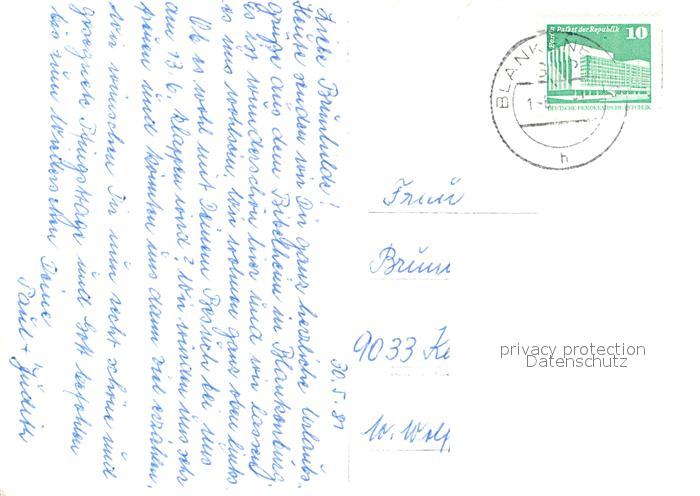 Liebe Brünhilde!
Heute senden wir Dir ganz herzliche Urlaubs-
grüße aus dem Bibelheim in Blankenburg.
Es ist wunderschön hier und wir lassen
es uns wohlsein, wir wohnen ganz oben links.
Ob es wohl mit Deinem Besuch bei uns
am 13.6. klappen wird? Wir würden uns sehr
freuen und könnten uns dann viel erzählen.
Wir wünschen Dir nun recht schöne und
gesegnete Pfingsttage und Gott befohlen
bis zum Wiedersehn Deine
Paul + Judith
30.5.81
Berlin Palast der Republik 10
DEUTSCHE DEMOKRATISCHE REPUBLIK
BLANKENBURG
h
Frau
Brün
9033 Ke
W. Wolf
privacy protection
Datenschutz